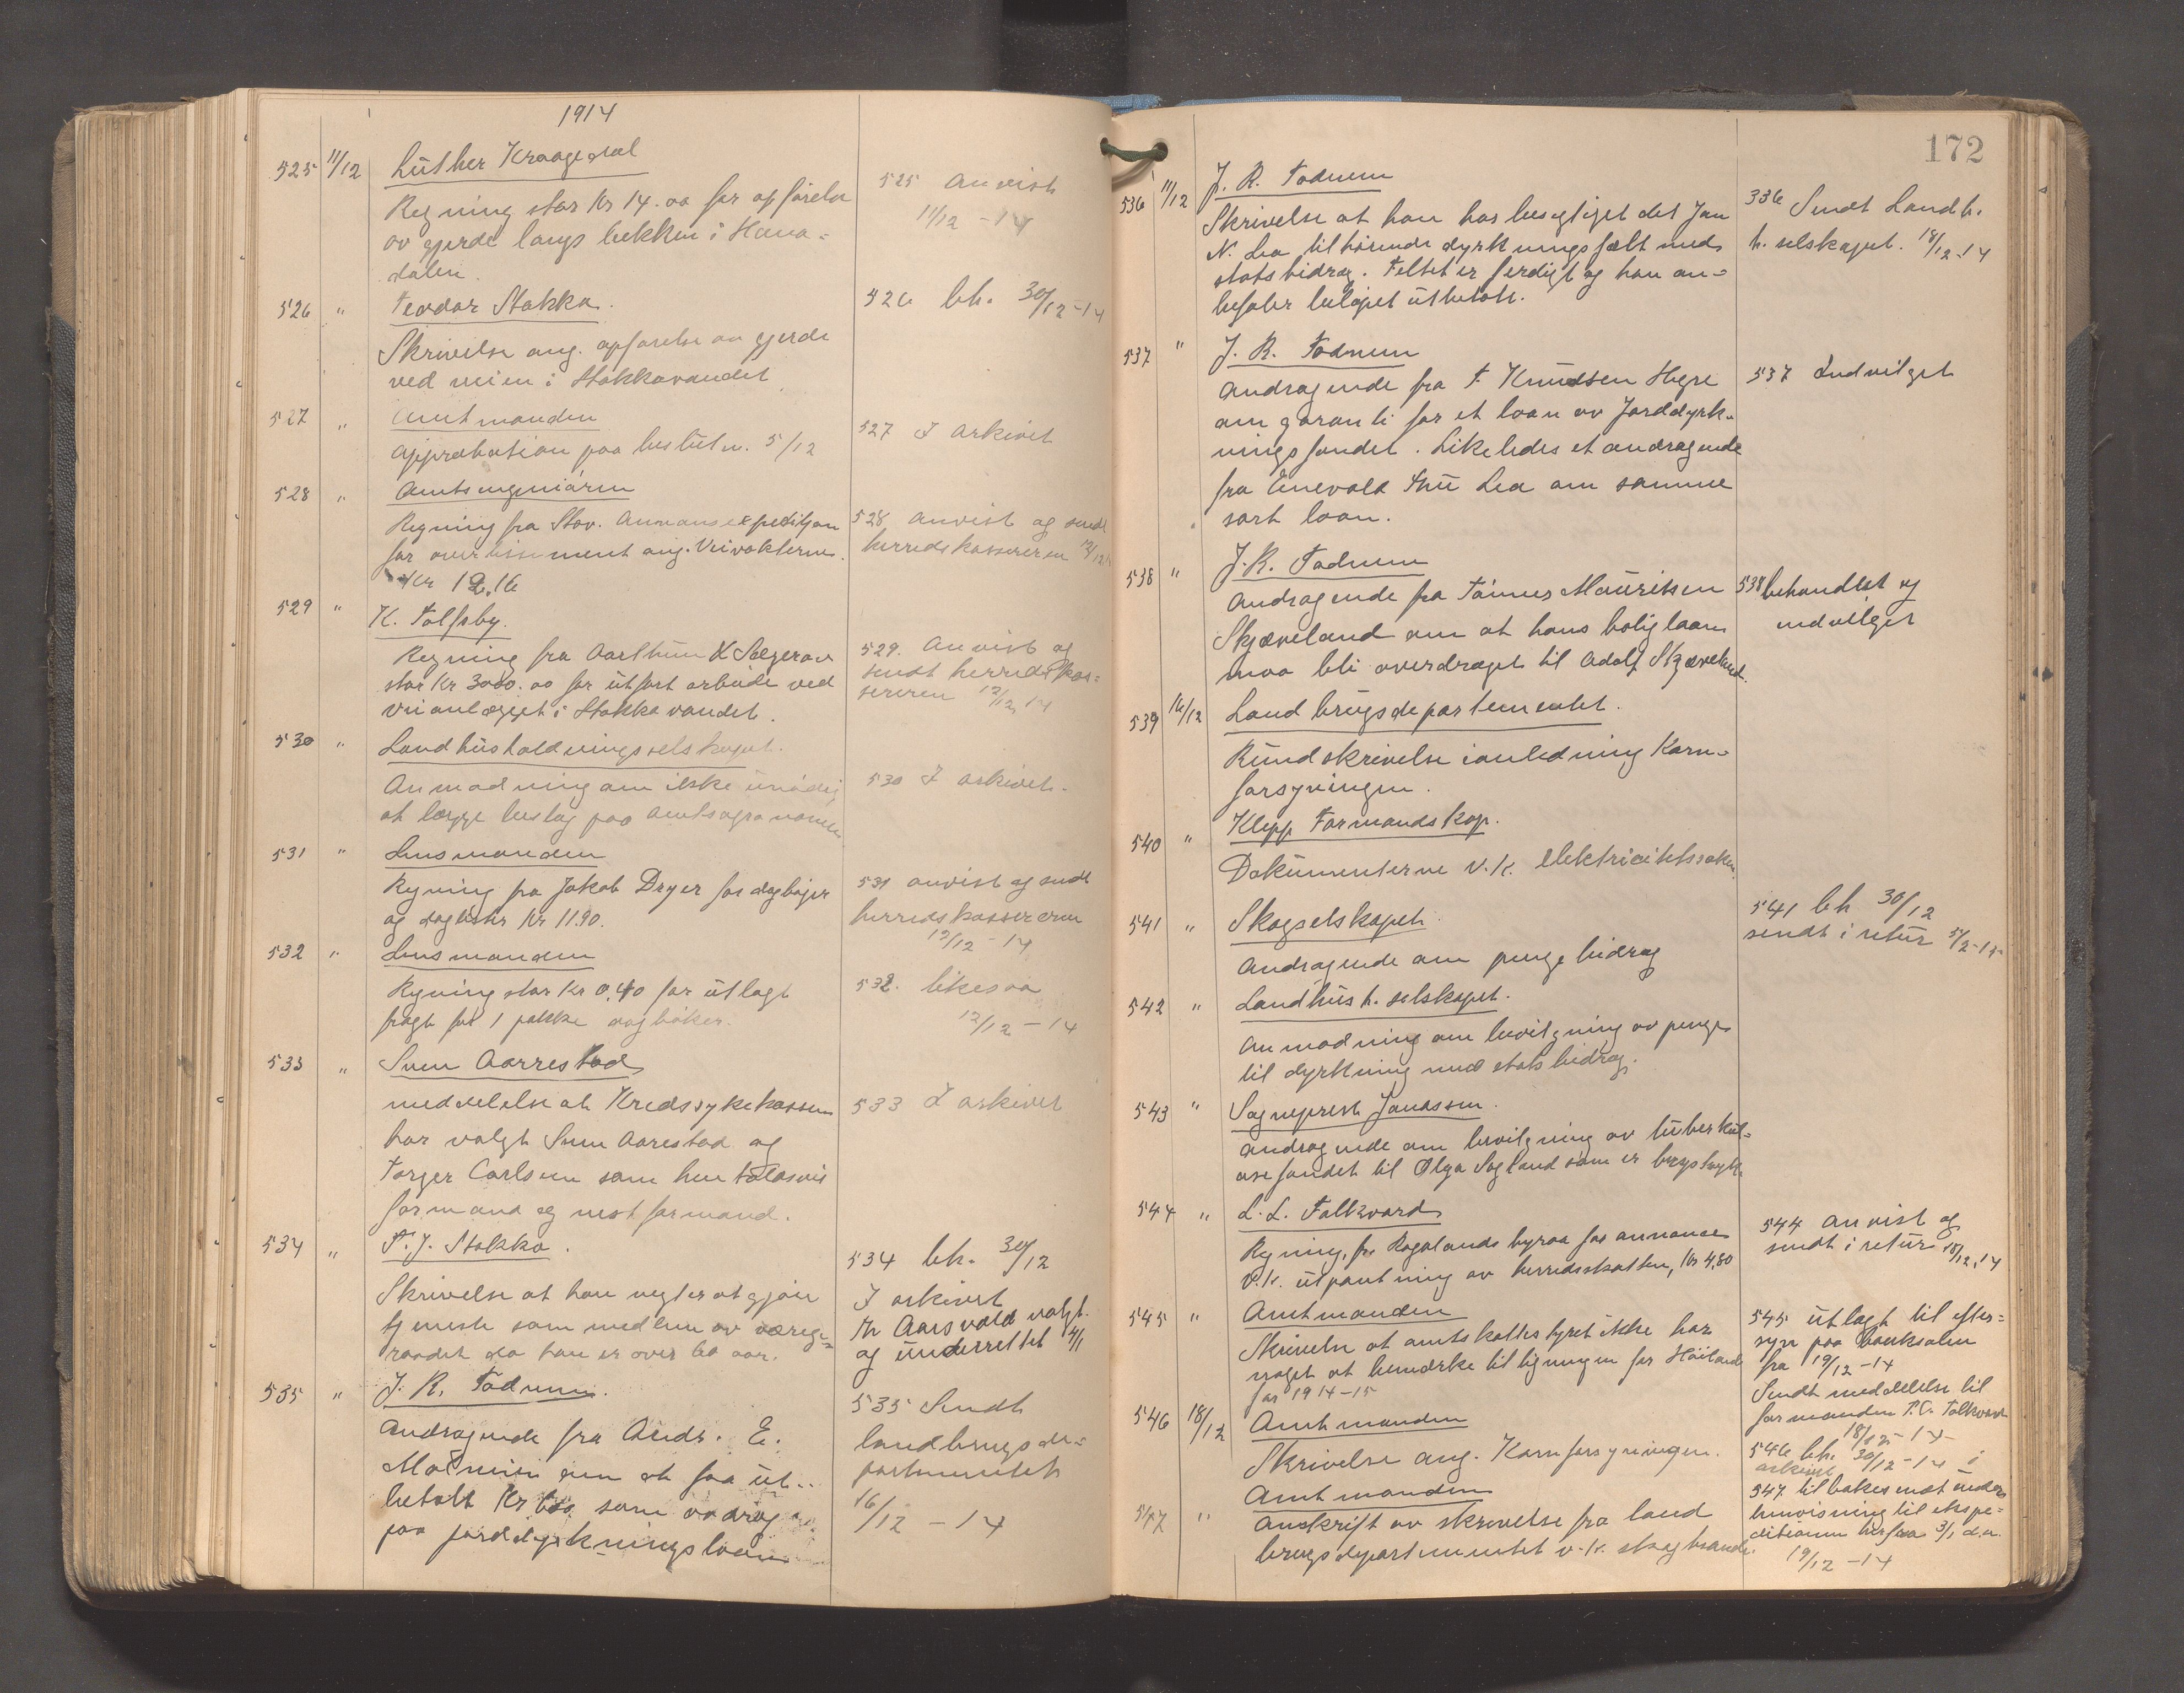 1914
525 11/12 Luther Kraagedal
Regning stor Kr 14.00 for opførelse
av gjerde langs bekken i Hana-
dalen.
525 Anvist
11/12 - 14
526 " Teodor Stokka.
Skrivelse ang. opførelse av gjerde
ved veien i Stokkavandet
526 bh. 30/12-14
527 " Amtmanden
Approbation paa beslutn. 5/12
527 I arkivet
528 " Amtsingeniøren
Regning fra Stav. Annonseexpedition
for avertissement ang. Veivokterne.
Kr 12.16
528 Anvist og sendt
herredskassereren 12/12
529 " K. Tolfsby.
Regning fra Aarthun & Salgerav
stor Kr 3000.00 for utført arbeide ved
Veianlægget i Stokkavandet.
529. Anvist og
sendt herredskas-
sereren 12/12 14
530 " Landhusholdningsselskapet.
Anmodning om ikke unødig
at lægge beslag paa amtsagronomen
530 I arkivet.
531 " Lensmanden
Regning fra Jakob Dryer for dagbøger
og daglister Kr 11.90.
531 anvist og sendt
herredskassereren
12/12 - 14
532 " Lensmanden
Regning stor Kr 0,40 for utlagt
fragt for 1 pakke dagbøker.
532. likesaa
12/12 - 14
533 " Sven Aarrestad
meddelelse at Kredssykekassen
har valgt Sven Aarestad og
Torger Carlsen som henholdsvis
formand og nestformand.
533 I arkivet
534 " T. J. Stokka.
Skrivelse at han negter at gjøre
tjeneste som medlem av værge-
raadet da han er over 60 aar.
534 bh. 30/12
I arkivet
Th Aarsvold valgt.
og underrettet 4/1
535 " J. R. Todnem.
Andragende fra Andr. E.
Malmin om at faa ut-
betalt Kr 600 som avdrag
paa jorddyrkningslaan
535 Sendt
landbrugsde-
partementet
16/12 - 14
172
536 11/12 J. R. Todnem
Skrivelse at han har besigtiget det Jan
N. Lea tilhørende dyrkningsfælt med
statsbidrag. Feltet er ferdigt og han an-
befaler beløpet utbetalt.
336 Sendt Landh.
h. selskapet. 18/12-14
537 " J. R. Todnem
Andragende fra T. Knudsen Hegre
om garanti for et laan av Jorddyrk-
ningsfondet. Likeledes et andragende
fra Enevald Thu Lea om samme
sort laan.
537 Indvilget
538 " J. R. Todnem
Andragende fra Tønnes Mauritsen
Skjæveland om at hans boliglaan
maa bli overdraget til Adolf Skjæveland.
538 behandlet og
indvilget
539 16/12 Landbrugsdepartementet.
Rundskrivelse ianledning Korn-
forsyningen.
540 " Klepp Formandskap.
Dokumenterne v.k. elektricitetssaken.
541 " Skogselskapet.
Andragende om penge bidrag
541 bh 30/12
sendt i retur 5/2-15
542 " Landhush. selskapet.
Anmodning om bevilgning av penge
til dyrkning med statsbidrag.
543 " Sogneprest Jonassen.
Andragende om bevilgning av tuberkul-
osefondet til Olga Sagland som er brystsyk.
544 " L. L. Folkvord
Regning fra Rogalands byraa for annonce
v.k. utpantning av herredsskatten, Kr 4,80
544 Anvist og
sendt i retur 18/12.14
545 " Amtmanden
Skrivelse at amtskattestyret ikke har
noget at bemerke til ligningen for Høiland
for 1914-15
545 utlagt til efter-
syn paa banksalen
fra 19/12 -14
Sendt meddelelse til
formanden P. C. Folkvord
18/12 - 14
546 18/12 Amtmanden
Skrivelse ang. Kornforsyningen.
546 bh. 30/12-14 i
arkivet
547 " Amtmanden
Avskrift av skrivelse fra land
brugsdepartementet v.k. skogbrande.
547 tilbakesendt under
henvisning til ekspe-
ditionen herfra 3/1 d.a.
19/12 -14